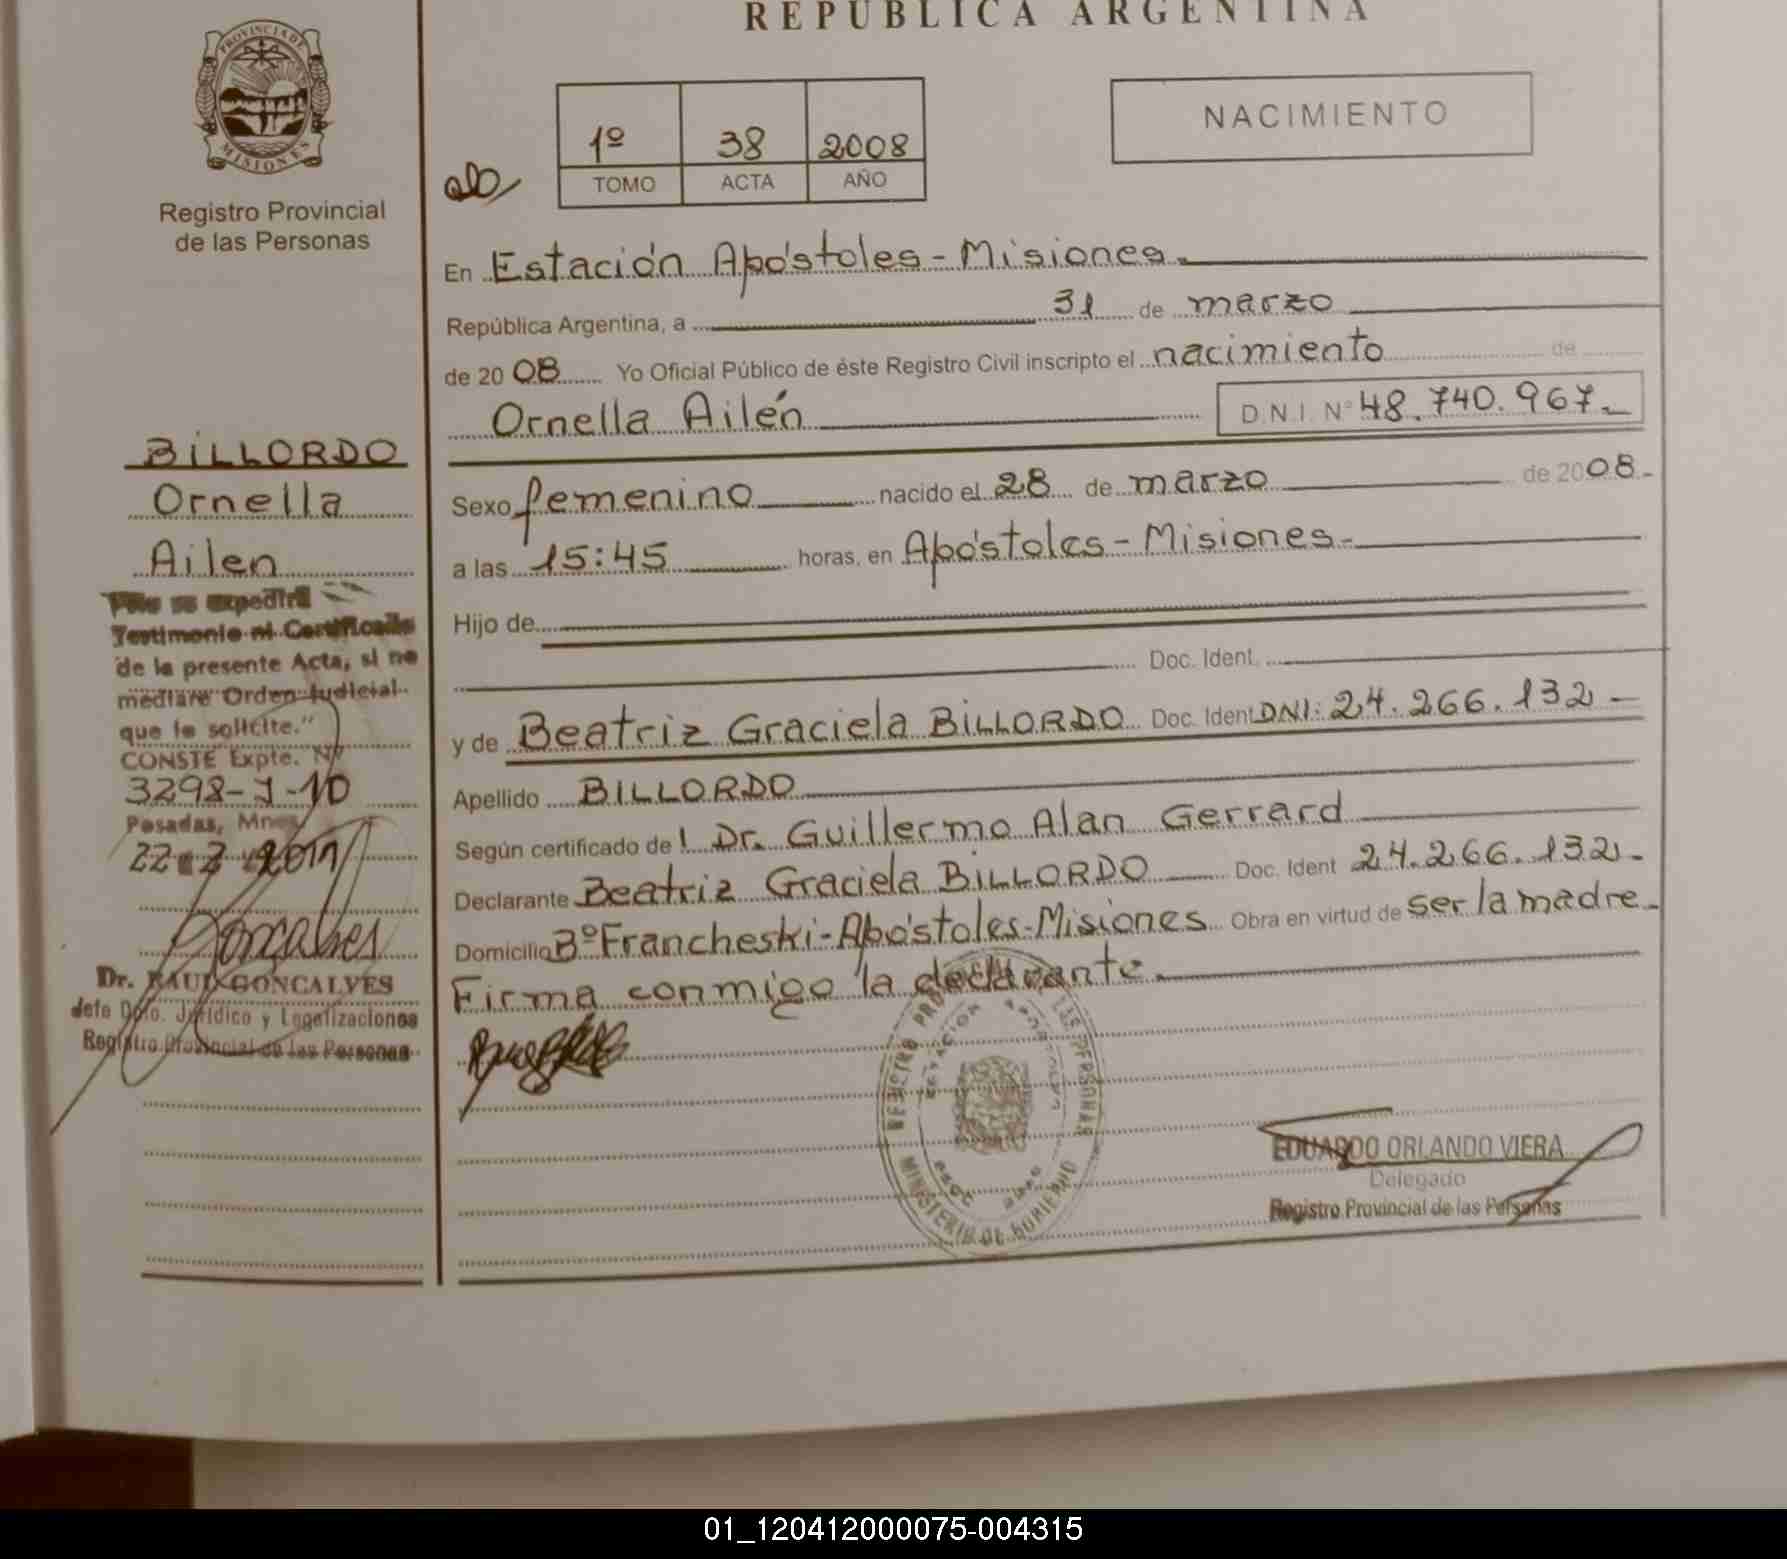 REPUBLICA ARGENTINA
PROVINCIA DE
MISIONES
Registro Provincial
de las Personas
1º 38 2008
TOMO ACTA AÑO
NACIMIENTO
En Estación Apóstoles - Misiones.
República Argentina, a 31 de marzo
de 2008 Yo Oficial Público de éste Registro Civil inscripto el nacimiento de
Ornella Ailén D.N.I. Nº 48.740.967.-
Sexo femenino nacido el 28 de marzo de 2008.-
a las 15:45 horas, en Apóstoles - Misiones.-
Hijo de
Doc. Ident.
y de Beatriz Graciela BILLORDO Doc. Ident DNI: 24.266.132 -
Apellido BILLORDO
Según certificado de l Dr. Guillermo Alan Gerrard
Declarante Beatriz Graciela BILLORDO Doc. Ident 24.266.132.-
Domicilio Bº Francheski - Apóstoles - Misiones Obra en virtud de ser la madre.-
Firma conmigo la declarante.
BILLORDO
Ornella
Ailen
se expedirá
Testimonio ni Certificado
de la presente Acta, si no
mediare Orden Judicial
que lo solicite."
CONSTE Expte. Nº
3298-J-10
Posadas, Mnes
22 2 2011
Goncalves
Dr. RAUL GONCALVES
Jefe Dpto. Jurídico y Legalizaciones
Registro Provincial de las Personas
REGISTRO PRO LAS PERSONAS
ESTACION APOSTOLES
MINISTERIO DE GOBIERNO
EDUARDO ORLANDO VIERA
Delegado
Registro Provincial de las Personas
01_120412000075-004315